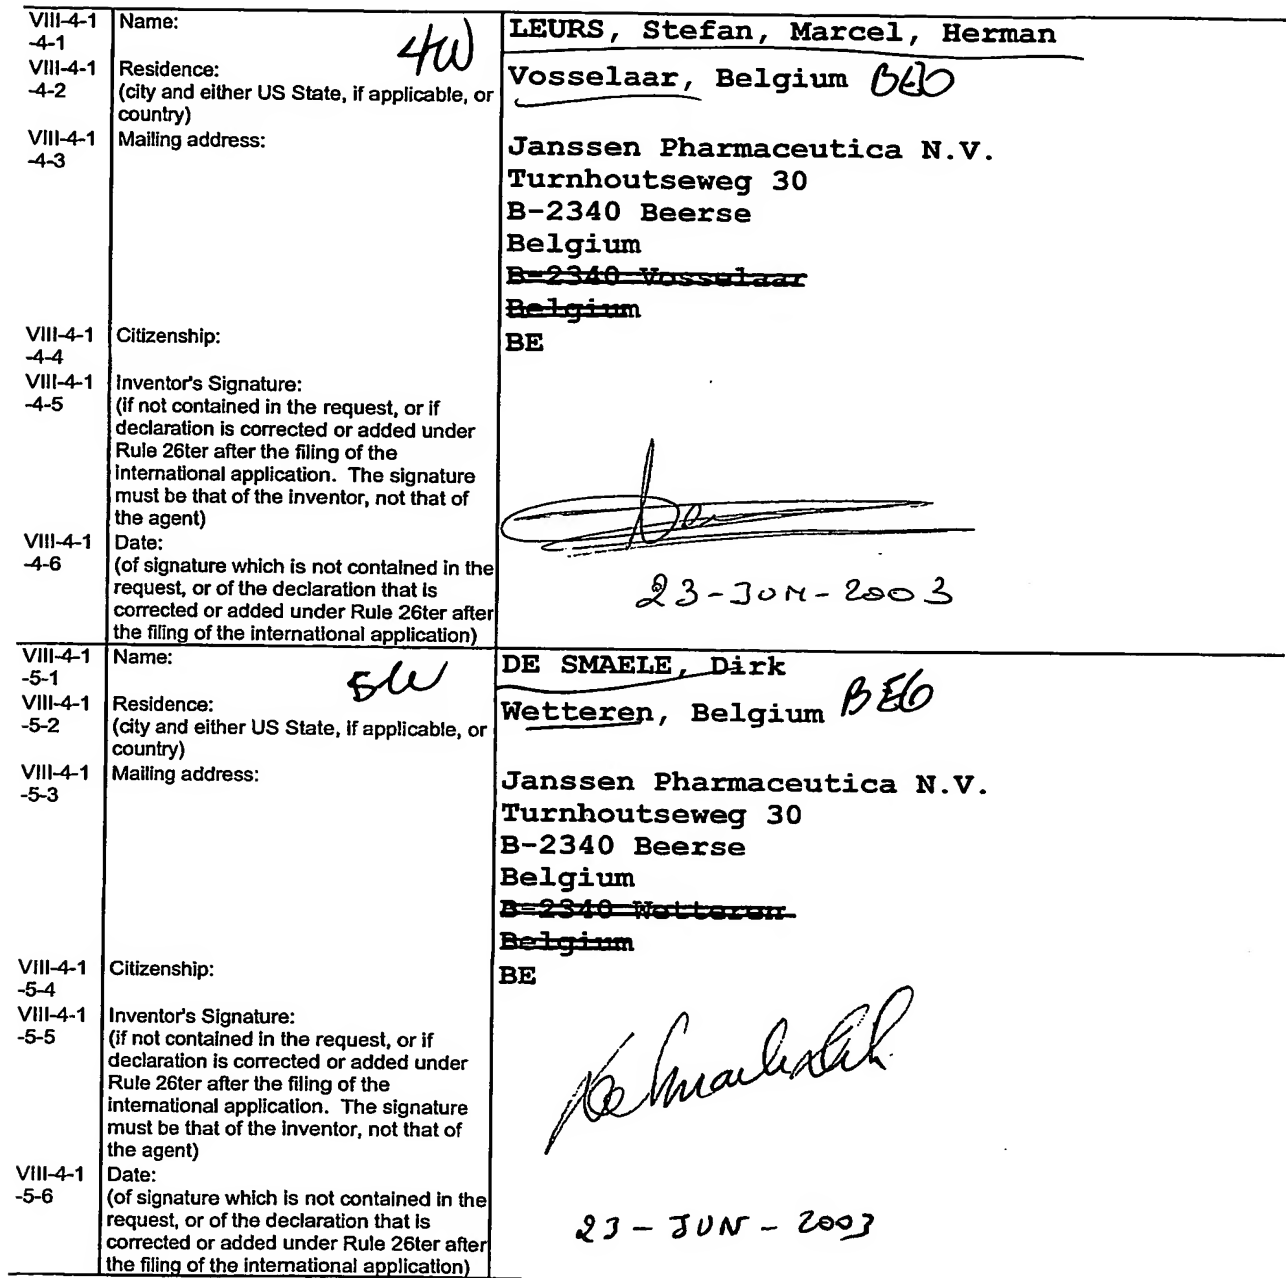 VIII-4-1 Name: LEURS, Stefan, Marcel, Herman
-4-1
VIII-4-1 Residence: Vosselaar, Belgium
-4-2 (city and either US State, if applicable, or
country)
VIII-4-1 Mailing address: Janssen Pharmaceutica N.V.
-4-3
Turnhoutseweg 30
B-2340 Beerse
Belgium
B-2340 Vosselaar
Belgium
VIII-4-1 Citizenship: BE
-4-4
VIII-4-1 Inventor's Signature:
-4-5 (if not contained in the request, or if
declaration is corrected or added under
Rule 26ter after the filing of the
international application. The signature
must be that of the inventor, not that of
the agent)
VIII-4-1 Date:
-4-6 (of signature which is not contained in the
request, or of the declaration that is
corrected or added under Rule 26ter after
the filing of the international application)
23-JUN-2003
VIII-4-1 Name: DE SMAELE, Dirk
-5-1
VIII-4-1 Residence: Wetteren, Belgium
-5-2 (city and either US State, if applicable, or
country)
VIII-4-1 Mailing address: Janssen Pharmaceutica N.V.
-5-3
Turnhoutseweg 30
B-2340 Beerse
Belgium
B-2340 Wetteren
Belgium
VIII-4-1 Citizenship: BE
-5-4
VIII-4-1 Inventor's Signature:
-5-5 (if not contained in the request, or if
declaration is corrected or added under
Rule 26ter after the filing of the
international application. The signature
must be that of the inventor, not that of
the agent)
VIII-4-1 Date:
-5-6 (of signature which is not contained in the
request, or of the declaration that is
corrected or added under Rule 26ter after
the filing of the international application)
23-JUN-2003